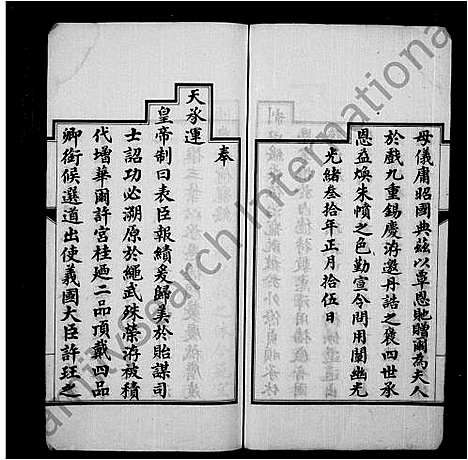 母儀庸昭國典茲以覃恩貤贈爾為夫人
於戲九重錫慶洊邀丹誥之褒四世承
恩益煥朱幩之色勤宣令問用闡幽光
光緒叁拾年正月拾伍日
奉
天承運
皇帝制曰表臣報績爰歸美於貽謀司
士詔功必溯原於繩武殊榮洊被積
代增華爾許宮桂廼二品頂戴四品
卿銜候選道出使義國大臣許珏之